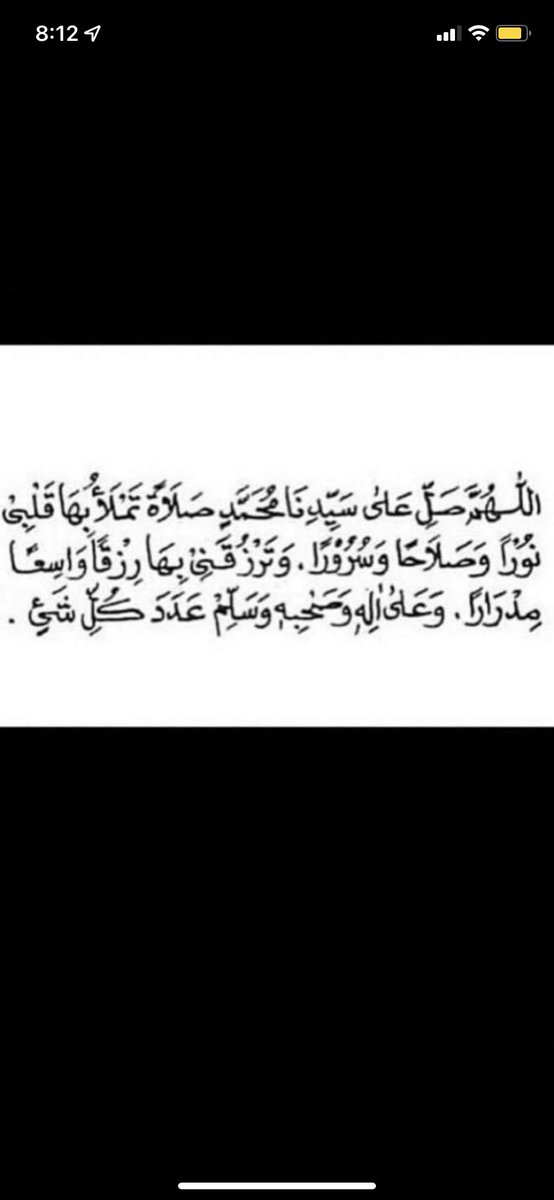 8:12
اللّٰهُمَّ صَلِّ عَلىٰ سَيِّدِنَا مُحَمَّدٍ صَلَاةً تَمْلَأُ بِهَا قَلْبِيْ
نُوْرًا وَصَلَاحًا وَسُرُوْرًا . وَتَرْزُقَنِيْ بِهَا رِزْقًا وَاسِعًا
مِدْرَارًا . وَعَلىٰ اٰلِهٖ وَصَحْبِهٖ وَسَلِّمْ عَدَدَ كُلِّ شَيْئٍ .